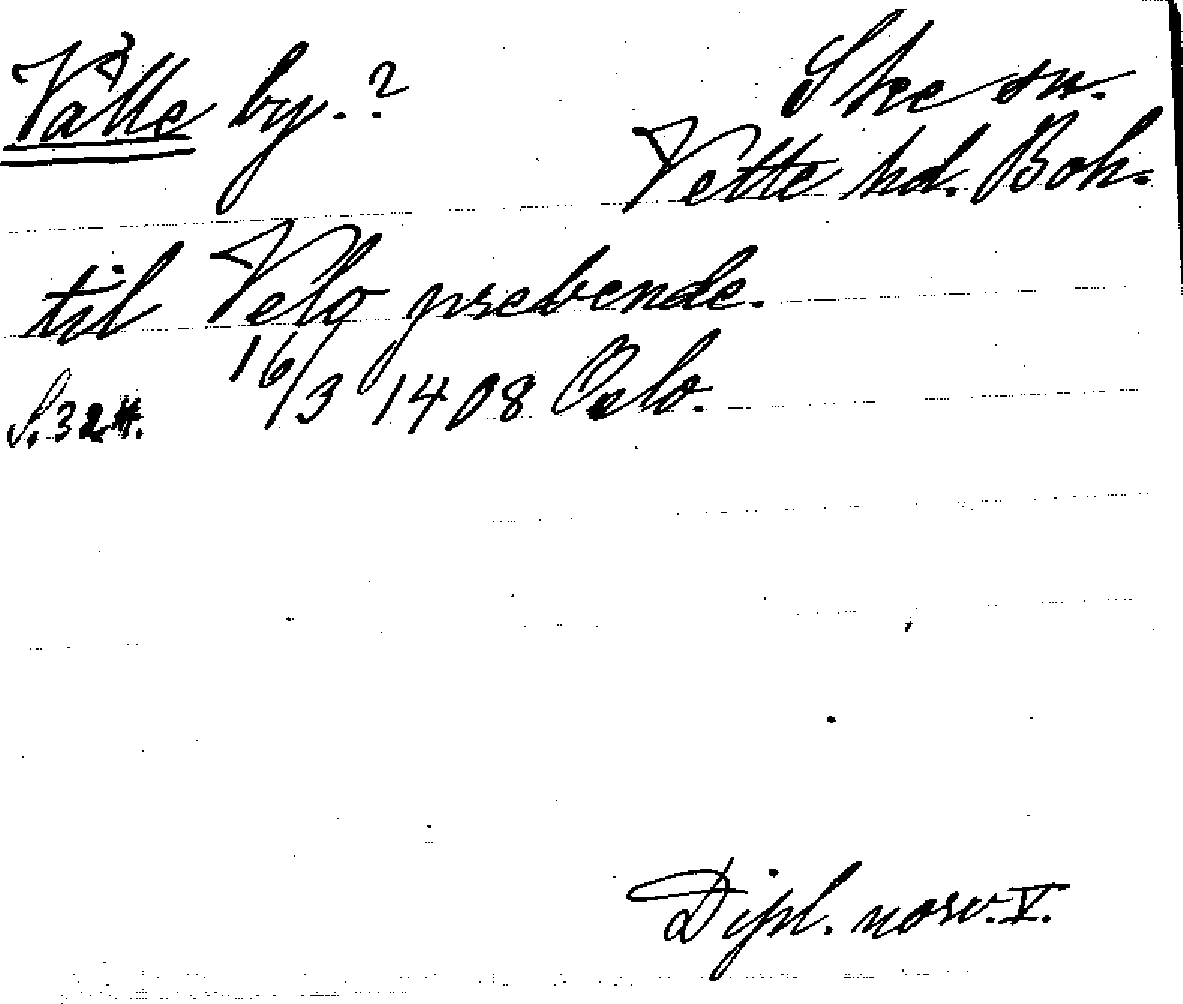 Välle by.?
Skee sn.
Vette hd. Boh.
til Velo prebende.
S. 324. 16/3 1408 Oslo.
Dipl. norv. V.